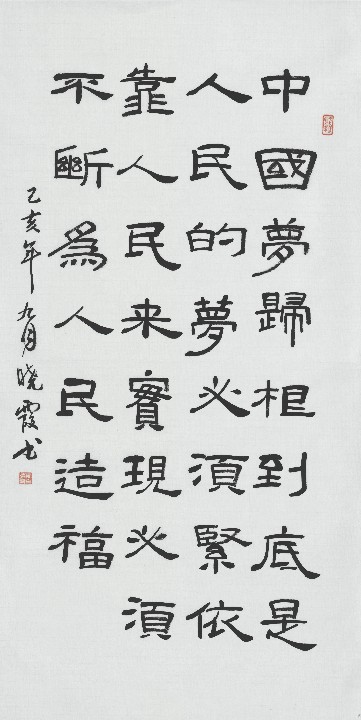 中國夢歸根到底是
人民的夢必須緊依
靠人民来實現必須
不斷為人民造福
己亥年九月晓霞书